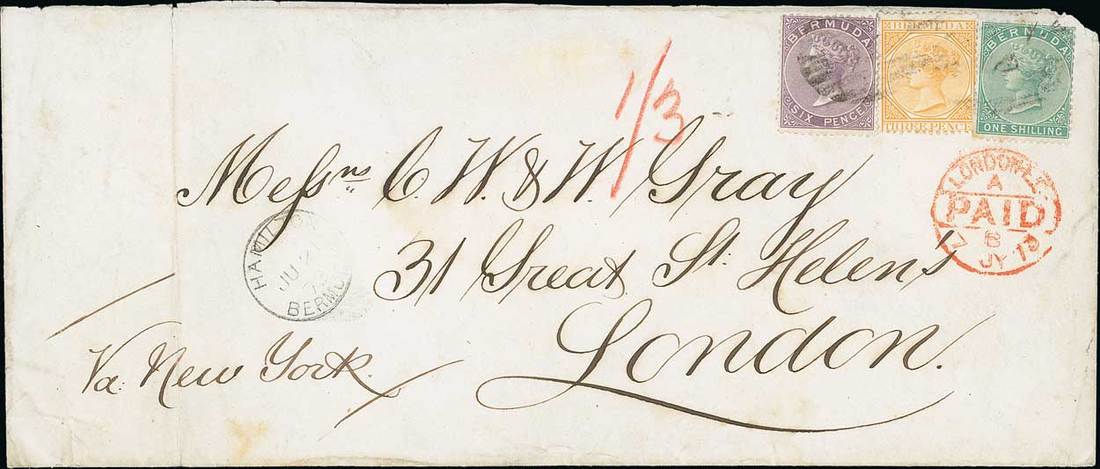 BERMUDA
SIX PENCE
BERMUDA
THREE PENCE
BERMUDA
ONE SHILLING
1/3
LONDON
A
PAID
JY
Messrs C. W. & W. Gray
31 Great St. Helens
London.
HAMIL
JU
BERMU
Via New York.